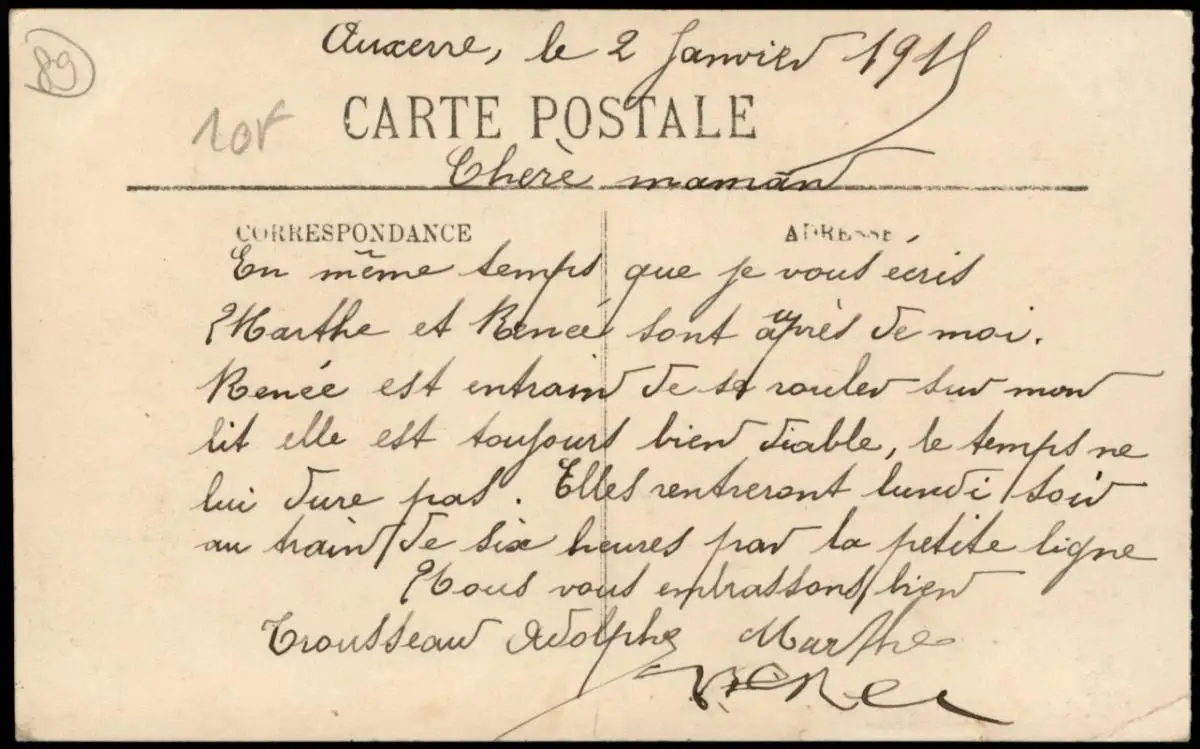 89
Auxerre, le 2 Janvier 1915
10F
CARTE POSTALE
Chère maman
CORRESPONDANCE
ADRESSE
En même temps que je vous écris
Marthe et Renée sont auprès de moi.
Renée est entrain de se rouler sur mon
lit elle est toujours bien diable, le temps ne
lui dure pas. Elles rentreront lundi soir
au train de six heures par la petite ligne
Nous vous embrassons bien
Trousseau Adolphe Marthe
Renée